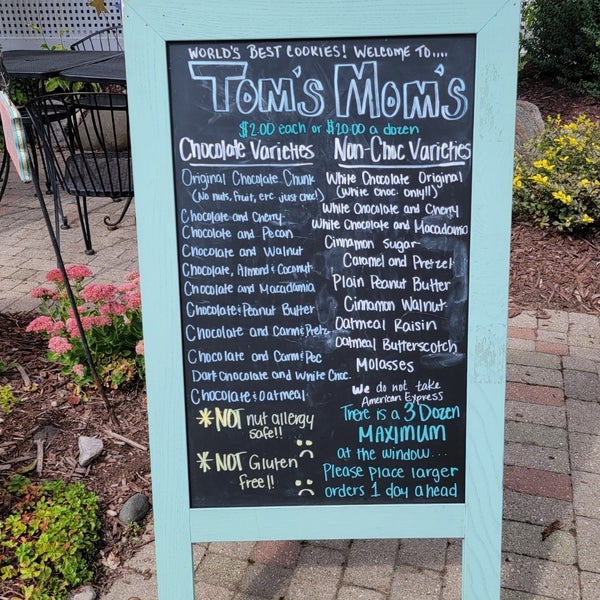 WORLD'S BEST COOKIES! WELCOME TO....
TOM'S MOM'S
$2.00 each or $20.00 a dozen
Chocolate Varieties
Original Chocolate Chunk
(No nuts, fruit, etc. just choc!)
Chocolate and Cherry
Chocolate and Pecan
Chocolate and Walnut
Chocolate, Almond & Coconut
Chocolate and Macadamia
Chocolate & Peanut Butter
Chocolate and Carm & Pretz
Chocolate and Carm & Pec
Dark Chocolate and White Choc.
Chocolate & Oatmeal
*NOT nut allergy
safe!!
*NOT Gluten
free!!
Non-Choc Varieties
White Chocolate Original
(White choc only!!)
White Chocolate and Cherry
White Chocolate and Macadamia
Cinnamon sugar
Caramel and Pretzel
Plain Peanut Butter
Cinnamon Walnut
Oatmeal Raisin
Oatmeal Butterscotch
Molasses
We do not take
American Express
There is a 3 Dozen
MAXIMUM
at the window...
Please place larger
orders 1 day ahead